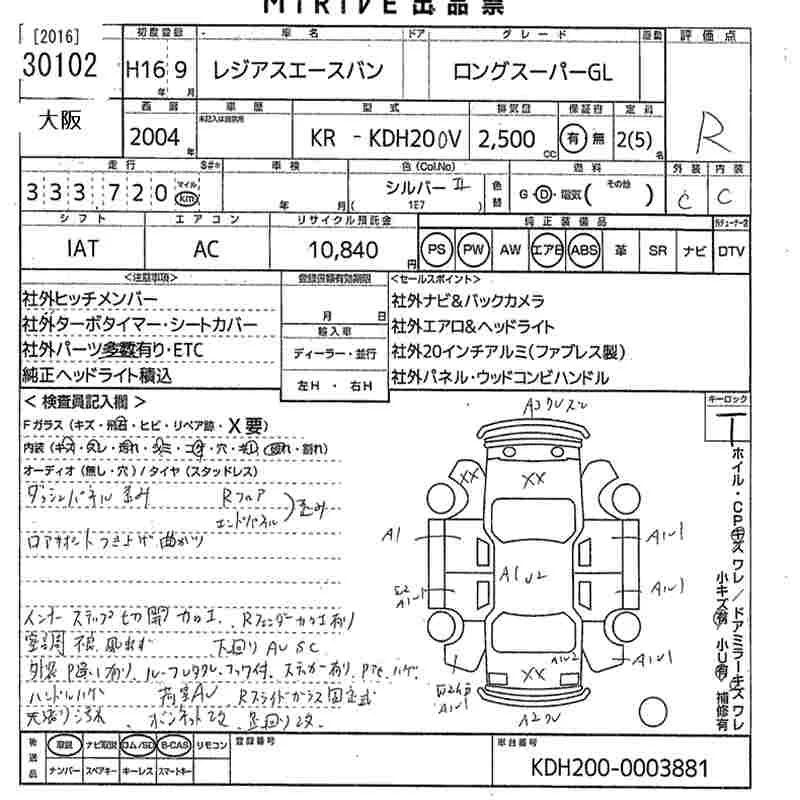 MIRIVE出品票
[2016]
30102
大阪
初度登録 車名 ドア グレード 評価点
H16 9 レジアスエースバン ロングスーパーGL R
年 月
西暦 車歴 型式 排気量 保証書 定員
未記入は自家用
2004年 KR - KDH200V 2,500cc 有 無 2(5)名
走行 S#* 車検 色(Col.No) 燃料 外装 内装
333,720 マイル km 年 月 シルバーII (1E7) 色替 G・D・電気( その他 ) C C
シフト エアコン リサイクル預託金 純正装備品
IAT AC 10,840円 PS PW AW エアB ABS 革 SR ナビ DTV
<注意事項> 登録書類有効期限 <セールスポイント>
社外ヒッチメンバー 社外ナビ&バックカメラ
月 日
社外ターボタイマー・シートカバー 輸入車 社外エアロ&ヘッドライト
社外パーツ多数有り・ETC ディーラー・並行 社外20インチアルミ(ファブレス製)
純正ヘッドライト積込 左H ・ 右H 社外パネル・ウッドコンビハンドル
<検査員記入欄> キーロック
Fガラス(キズ・飛石・ヒビ・リペア跡・X要)
内装(キズ・スレ・汚れ・シミ・コゲ・穴・割れ)
オーディオ(無し・穴)/タイヤ(スタッドレス)
ダッシュパネル歪み Rフロア
エンドパネル 歪み
ロアサポートつき上げ曲がり
インナーステップ切開加工、Rフェンダー加工有り
下回りAUSC
ハンドルハゲ 荷室AU Rスライドガラス固定式
天張り汚れ ボンネット改
XX XX
A1 A1U1
A1U2
A1U1 A1U1
A1U2
A1U1 XX A1U1
ホイル・CPキズワレ/ドアミラーキズワレ
小キズ有 小U有 補修有
後送品 取説 ナビ取説 ロム/SD B-CAS リモコン 登録番号 車台番号
ナンバー スペアキー キーレス スマートキー KDH200-0003881